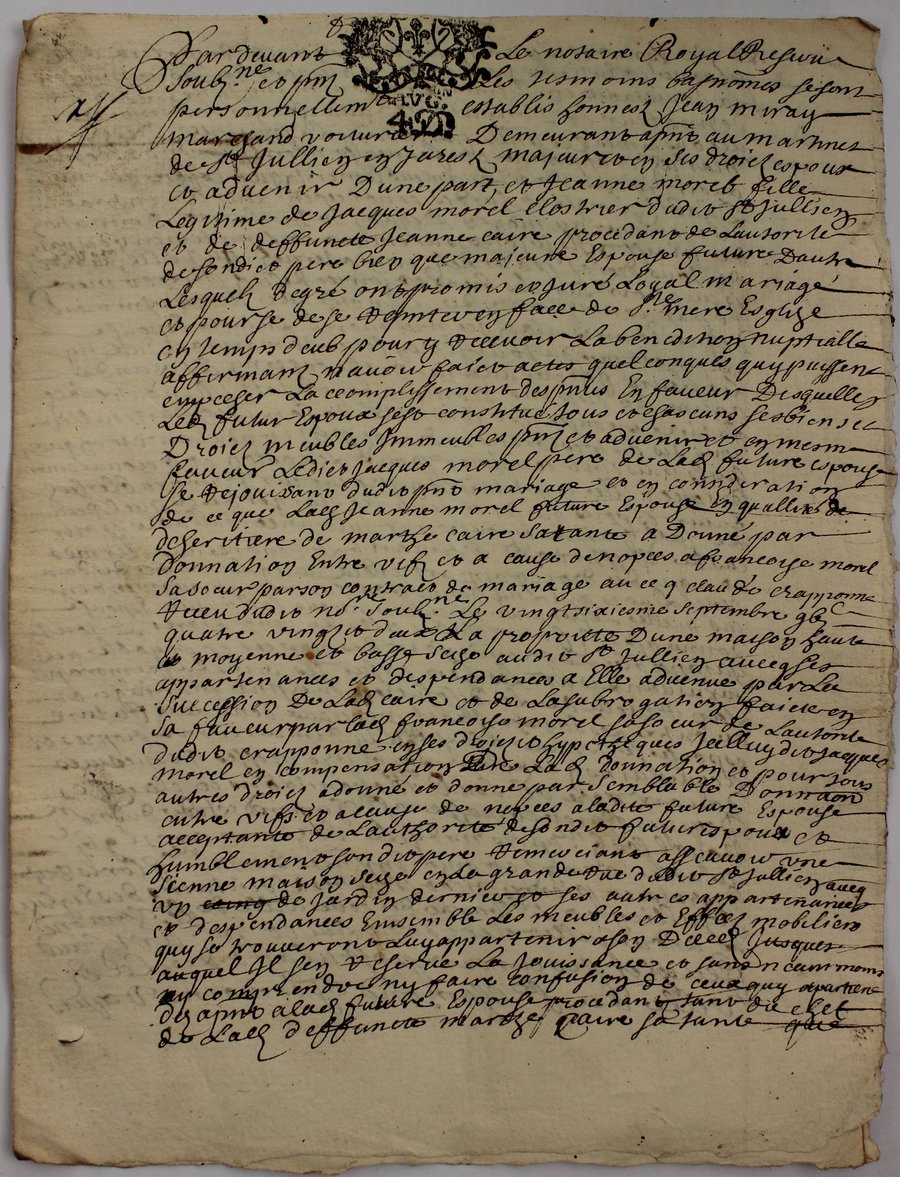 Pardevant Le notaire Royal Reservé
Soub.ne et pnt Les tesmoins basnommes se sont
personnellem.t establis honneste Jean miray
marchand voitur Demeurant apnt au martinet
de St Jullien en Jarest majeur et en ses droicts espoux
et advenir Dune part, et Jeanne morel fille
Legitime de Jacques morel cloustrier dudit St Jullien
et de deffuncte Jeanne caire procedant de Lautorité
de sondict pere bien que majeure Espouse future Dautre
Lesquels de gré ont promis et juré Loyal mariage
et pour se de se en face de Ste mere Esglize
en temps deub pour y recevoir La benediction nuptialle
affirmant navoir faict actes quelconques quy puissent
empecser Laccomplissement des pntes En faveur Desquelles
Led futur Espoux sest constitué tous et chascuns ses biens et
Droicts meubles Immeubles pnts et advenir et en mesme
faveur Ledict Jacques morel pere de Lad future espouse
se rejouissant dudit pnt mariage et en consideration
de ce que Lad Jeanne morel future Espouse En quallité de
dheritiere de marthe caire sa tante a Donné par
donnation Entre vifs et a cause de nopces a francoise morel
sa soeur par son contract de mariage avec claude crapponne
receu dudit no.re soub.ne Le vingtsixiesme septembre
quatre vingts et deux La proprietté Dune maison haute
et moyenne et basse Seize audit St Jullien avec ses
appartenances et despendances a Elle advenue par La
succession De Lad caire et de La subrogation faicte en
sa faveur par lad francoise morel sa soeur de Lautorité
dudit crapponne en ses droicts et hypotheques Icelluy dit Jacques
morel en compensation de Lad donnation et pour tous
autres droicts a donné et donne par semblable Donnaon
entre vifs et a cause de nopces a ladite future Espouse
acceptante de Lauthorité de sondit futur espoux et
humblement sondit pere remerciant asscavoir une
sienne maison seize en La grande rue dudit St Jullien avec
un de jardin dernier et ses autres appartenances
et despendances Ensemble Les meubles et Effects mobiliers
quy se trouveront Luy appartenir a son Deces Jusques
auquel Il sen reserve La Jouissance et sans neanmoins
ny comprendre ny faire confusion de ceux quy apartiene
des apnt a lad future Espouse procedant tant du chef
de Lad deffuncte marthe caire sa tante que